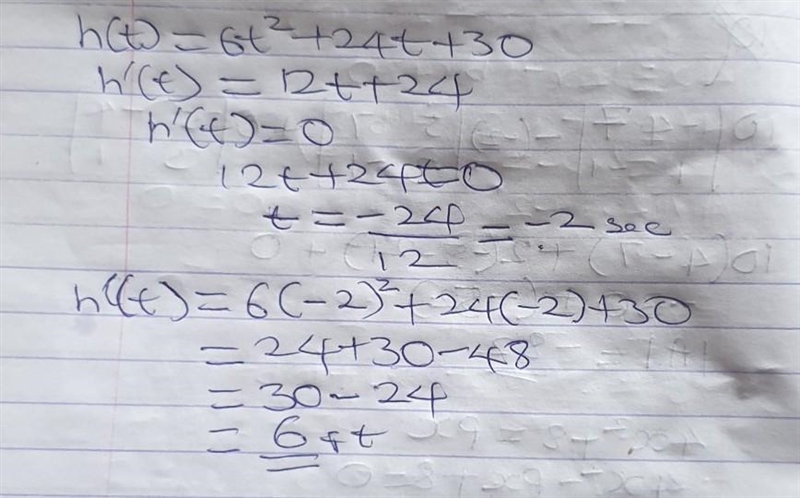 h(t) = 6t²+24t+30
h'(t) = 12t+24
h'(t)=0
12t+24t=0
t = -24/12 = -2 sec
h'(t) = 6(-2)²+24(-2)+30
= 24+30-48
= 30-24
= 6 ft